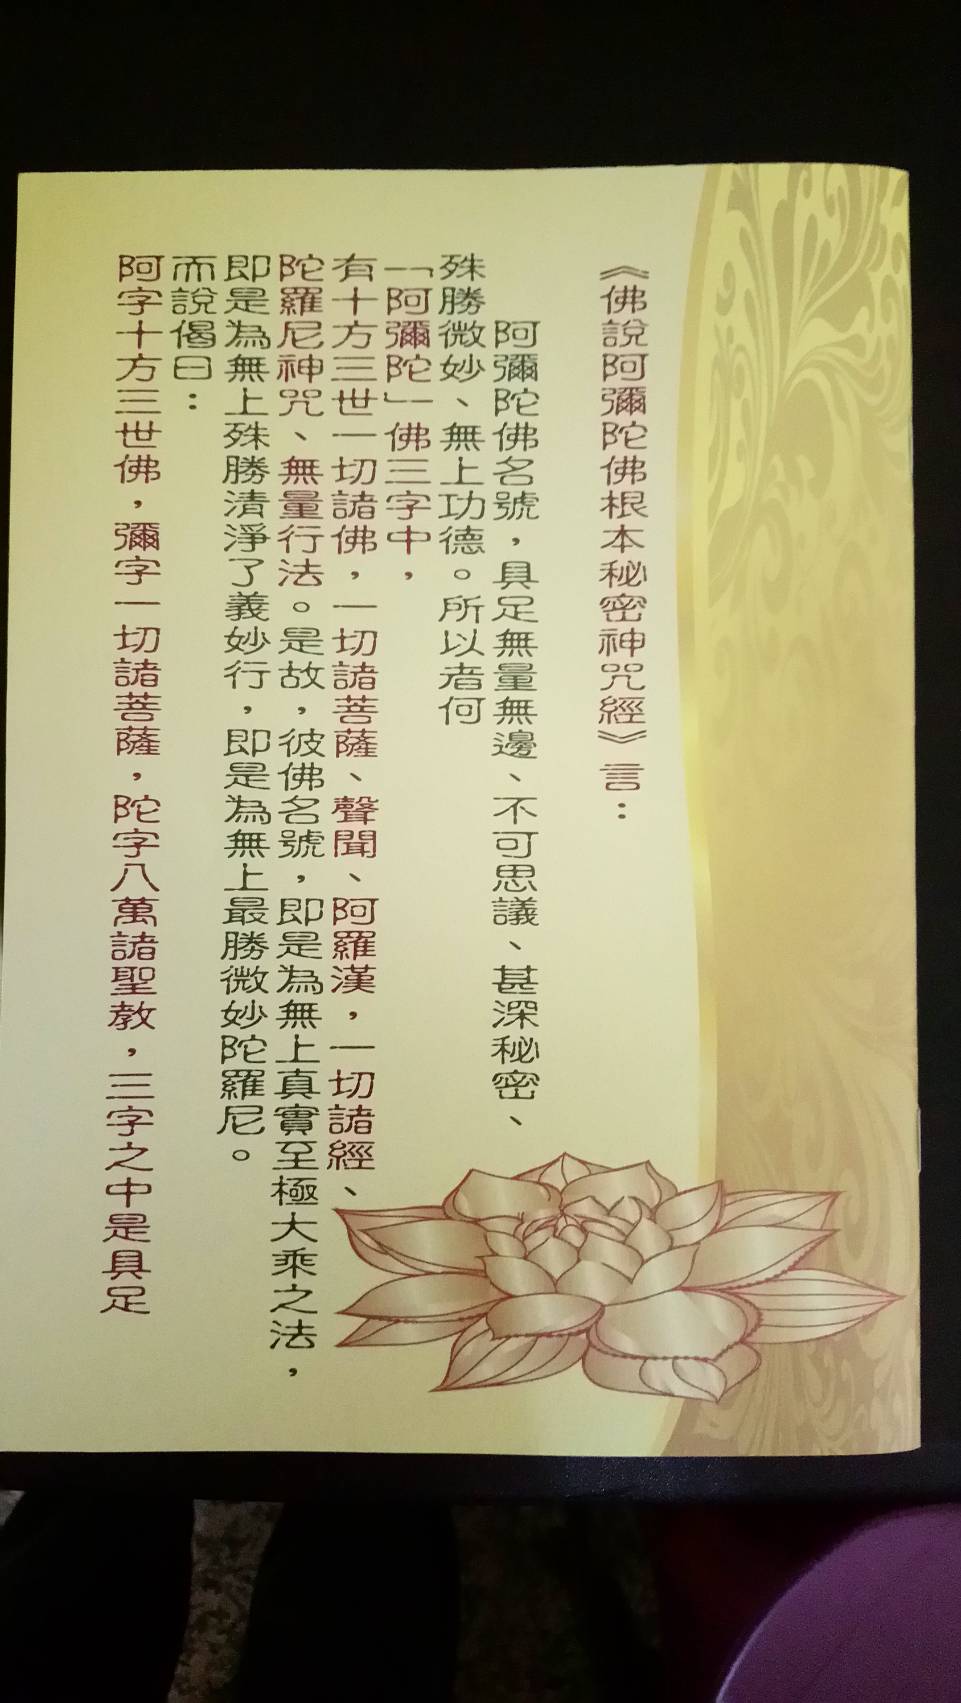 《佛說阿彌陀佛根本秘密神咒經》言：
阿彌陀佛名號，具足無量無邊、不可思議、甚深秘密、
殊勝微妙、無上功德。所以者何
「阿彌陀」佛三字中，
有十方三世一切諸佛，一切諸菩薩、聲聞、阿羅漢，一切諸經、
陀羅尼神咒、無量行法。是故，彼佛名號，即是為無上真實至極大乘之法，
即是為無上殊勝清淨了義妙行，即是為無上最勝微妙陀羅尼。
而說偈曰：
阿字十方三世佛，彌字一切諸菩薩，陀字八萬諸聖教，三字之中是具足